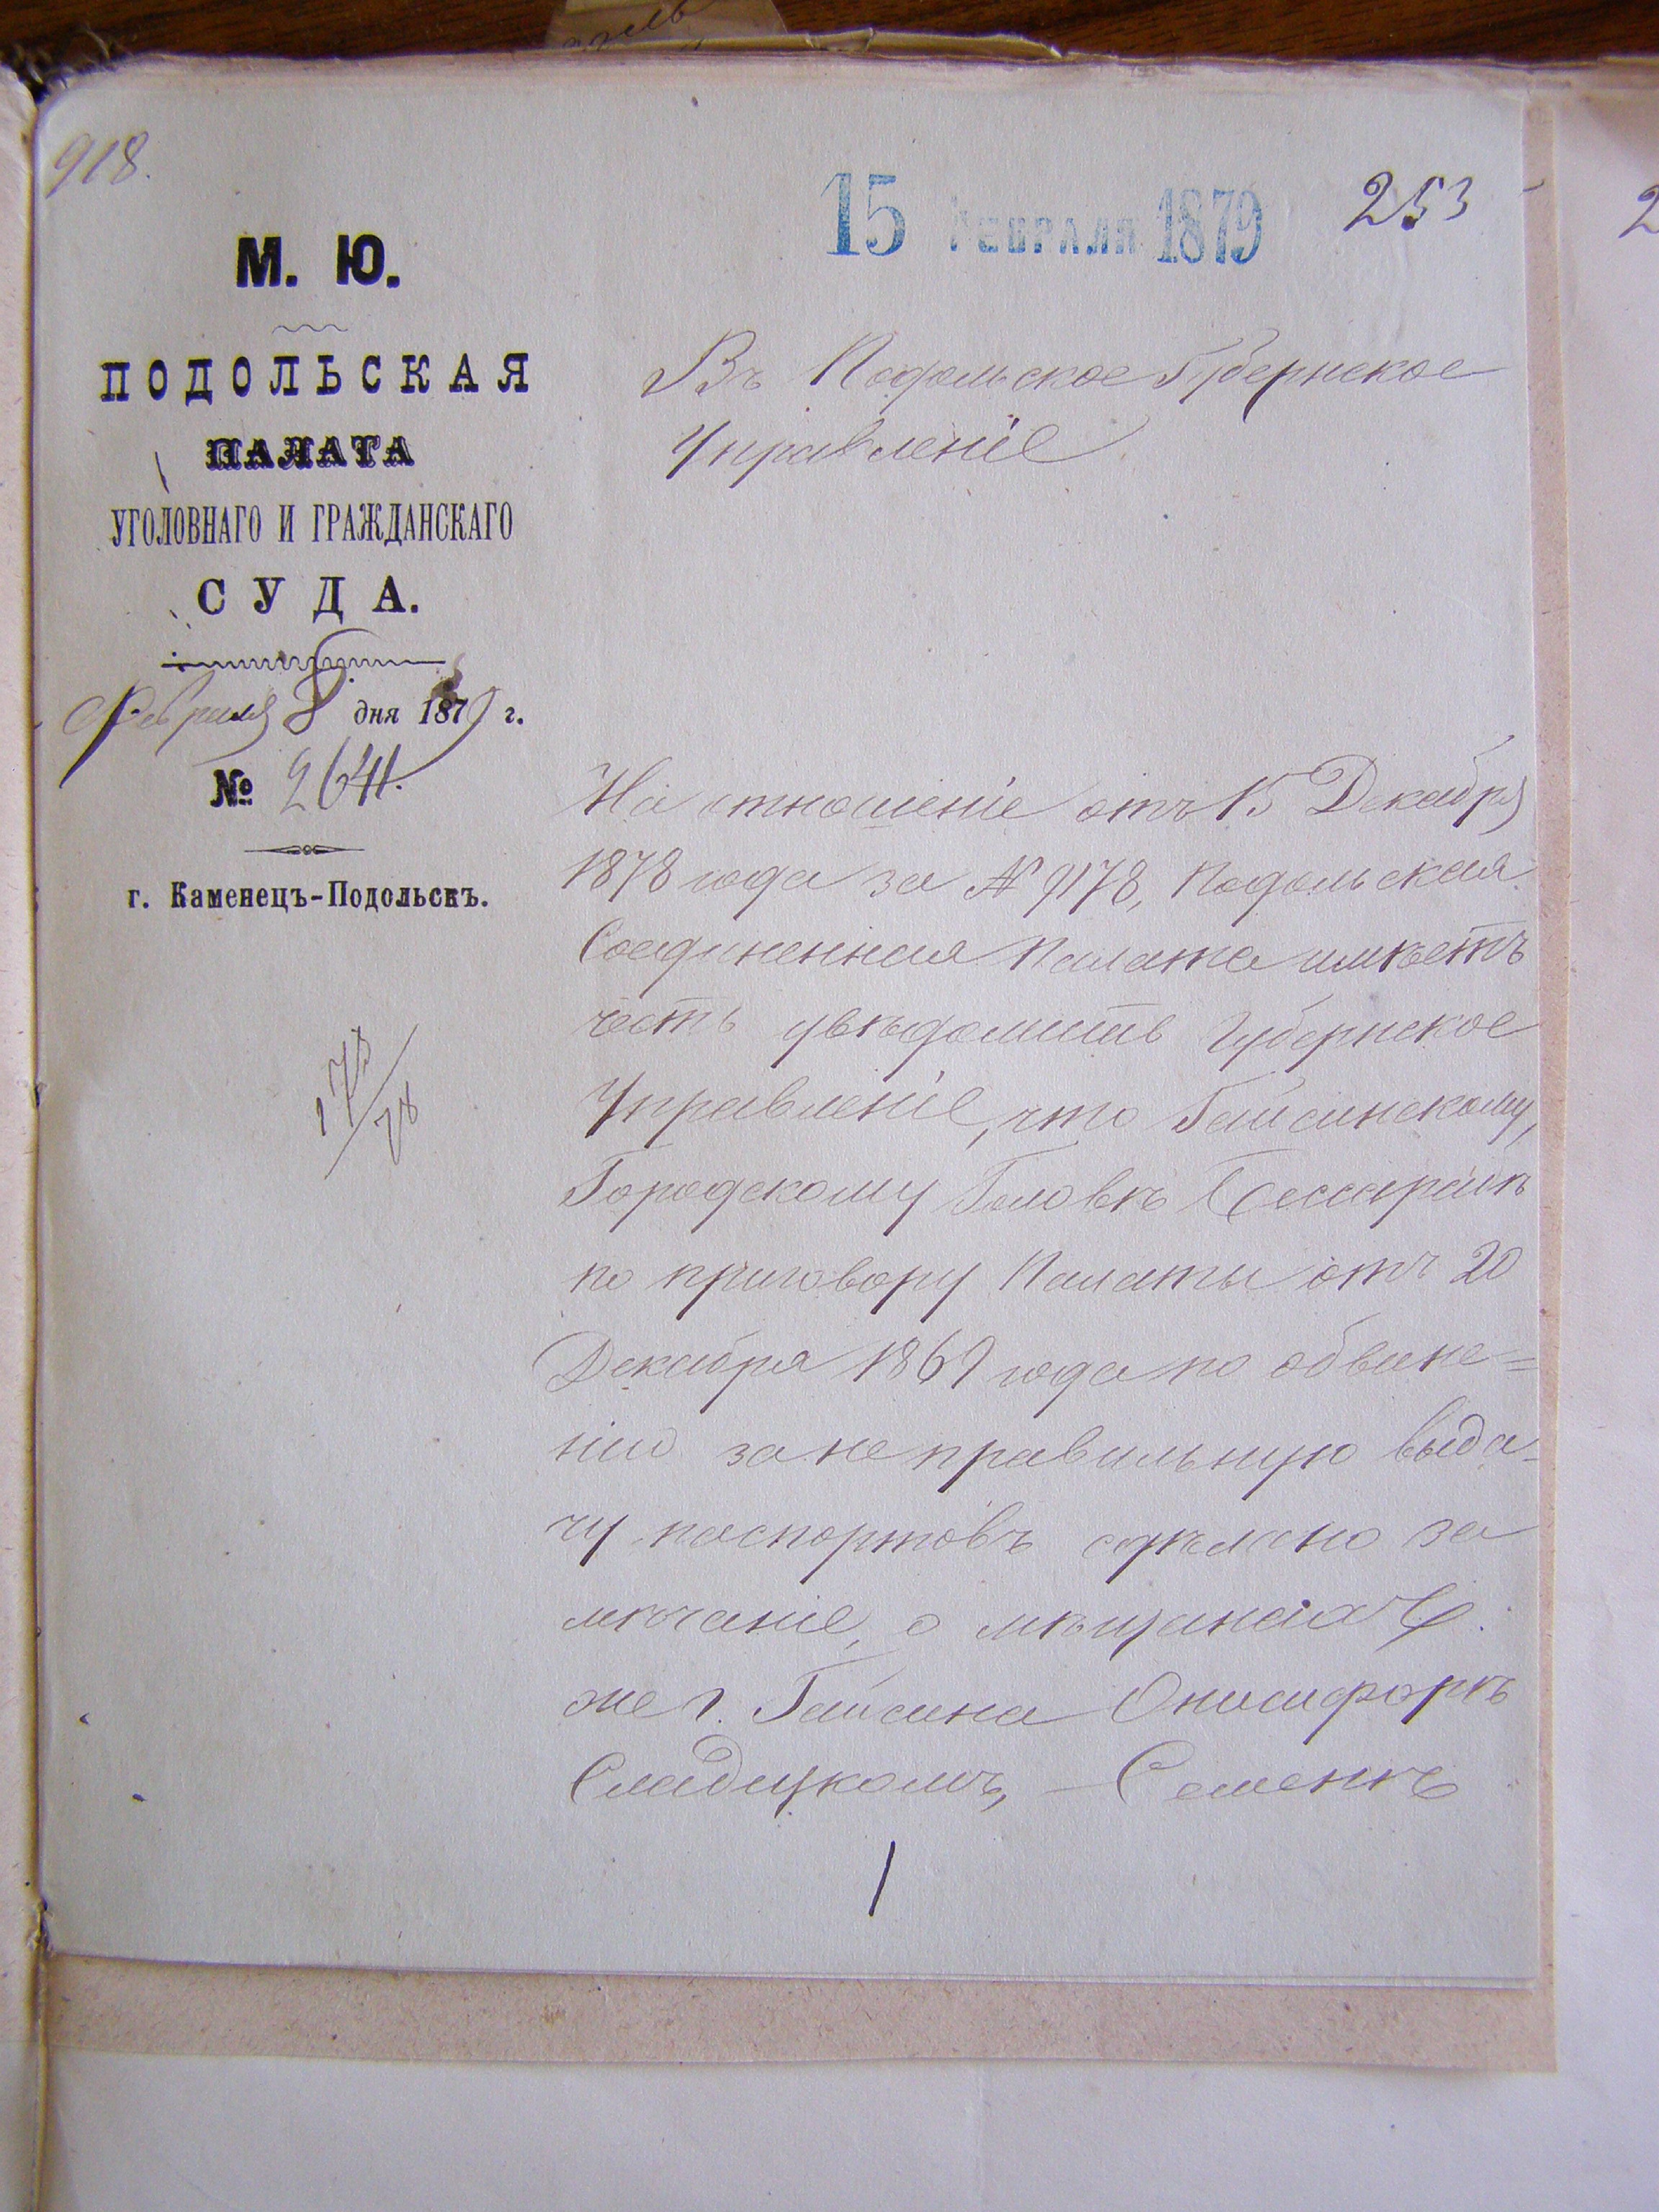 918.
15 ФЕВРАЛЯ 1879
253
М. Ю.
ПОДОЛЬСКАЯ
ПАЛАТА
УГОЛОВНАГО И ГРАЖДАНСКАГО
СУДА.
Февраля 8 дня 1879 г.
№ 2641.
г. Каменецъ-Подольскъ.
Въ Подольское Губернское
Управленіе
На отношеніе отъ 15 Декабря
1878 года за № 9178, Подольская
Соединенная Палата имѣетъ
честь увѣдомить Губернское
Управленіе, что Гайсинскому,
Городскому Головѣ
по приговору Палаты отъ 20
Декабря 1869 года по обвине=
нію за неправильную выда-
чу паспортовъ сдѣлано за
мѣчаніе, о мѣщанахъ
же г. Гайсина Онисифорѣ
Сладецкомъ, – Семенѣ